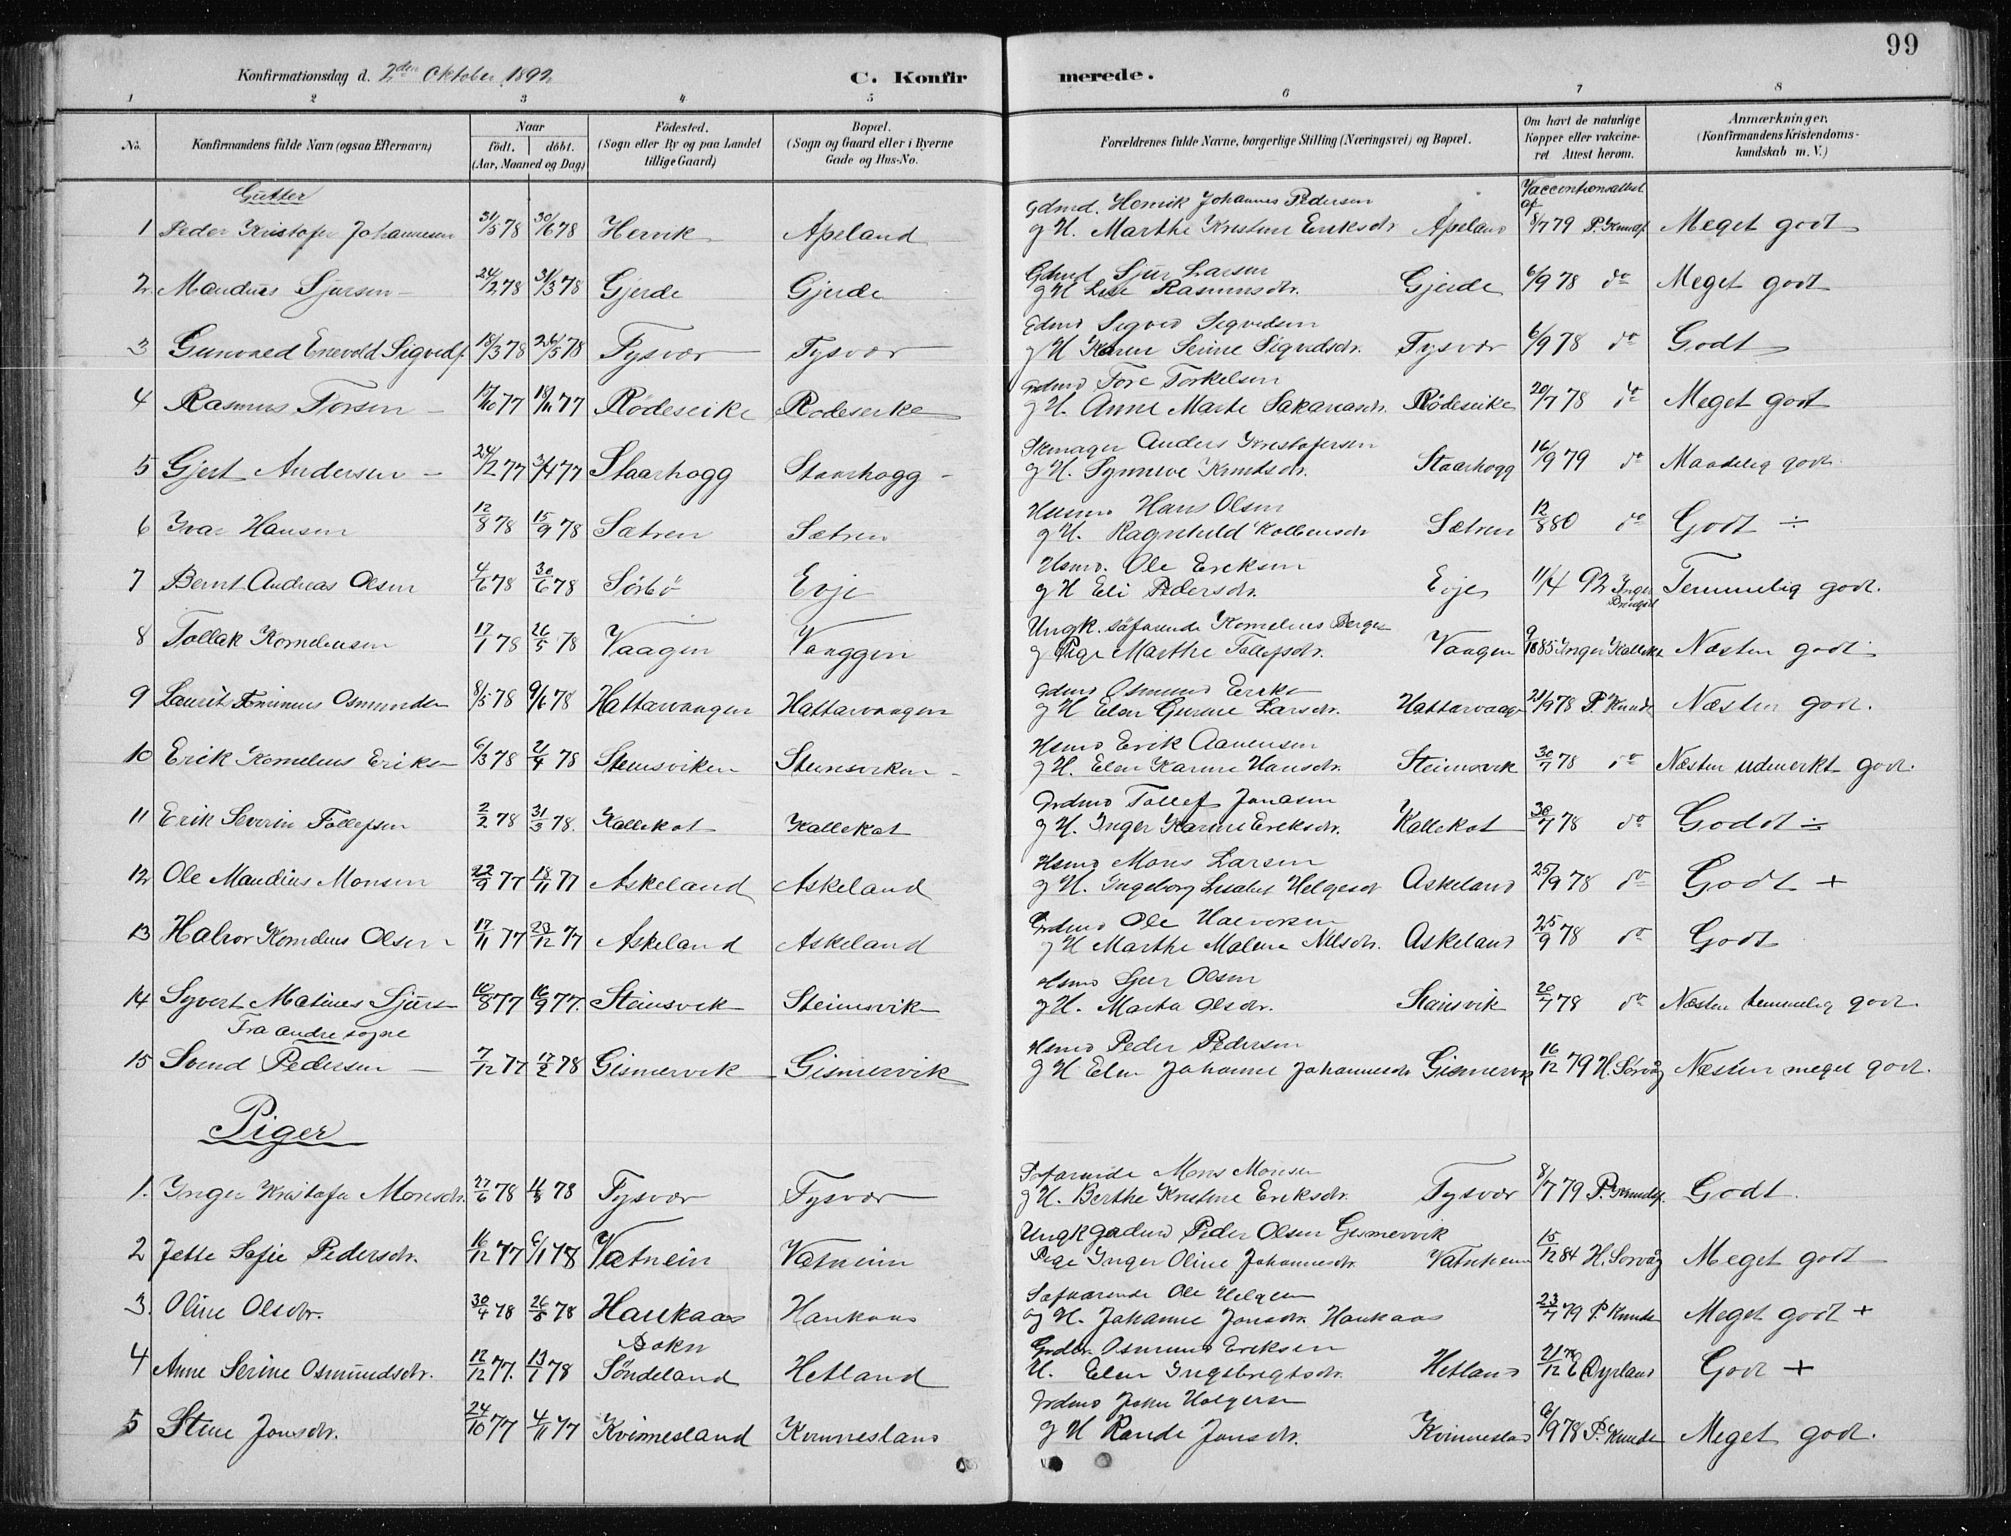 99
Konfirmationsdag d. 2den Oktober 1892
C. Konfirmerede.
1 2 3 4 5 6 7 8
No.
Konfirmandens fulde Navn (ogsaa Efternavn)
Naar
födt. döbt.
(Aar, Maaned og Dag)
Födested.
(Sogn eller By og paa Landet
tillige Gaard)
Bopæl.
(Sogn og Gaard eller i Byerne
Gade og Hus-No.
Forældrenes fulde Navne, borgerlige Stilling (Næringsvei) og Bopæl.
Om havt de naturlige
Kopper eller vakcine-
ret Attest herom.
Anmærkninger.
(Konfirmandens Kristendoms-
kundskab m. V.)
Gutter
Gdmd. Henrik Johannes Pedersen
1 Peder Kristofer Johannesen 31/5 78 30/6 78 Hervik Apeland g H. Marthe Kristine Eriksdr Apeland 8/7 79 P. Knuds. Meget godt
Gdmd Sjur Larsen
2 Mandius Sjursen 24/2 78 31/3 78 Gjerde Gjerde g H Lise Rasmusdr. Gjerde 6/9 78 do Meget godt
Gdmd Sigved Sigvedsen
3 Gunvald Enevold Sigveds. 18/3 78 26/5 78 Tysvær Tysvær g H Karen Serine Sigvedsdr. Tysvær 6/9 78 do Godt
Gdmd Tore Torkelsen
4 Rasmus Torsen 17/10 77 18/11 77 Rödeseike Rodeseike g H. Anne Marte Sakariasdr. Rödeseike 20/7 78 do Meget godt
Anders Kristofersen
5 Gjert Andersen 24/2 77 3/4 77 Staarhogg Staarhogg g H. Synneve Knudsdr. Staarhogg 16/9 79 do Maadelig godt
Husmd Hans Olsen
6 Ivar Hansen 12/8 78 15/9 78 Sætren Sætren g H. Ragnhild Kolbensdr Sætren 12/8 80 do Godt ÷
Hsmd. Ole Eriksen
7 Bernt Andreas Olsen 4/6 78 30/6 78 Sörbö Evje g H Eli Pedersdr. Evje 11/4 92 Inger Temmelig godt.
Ungk. söfarende Kornelius Berges
8 Tollak Kornelusen 17/1 78 26/5 78 Vaagen Vaaggen g Pige Marthe Tollefsdr. Vaagen 9/10 85 Inger Kallekot Næsten godt
Gdmd Osmund Eriks
9 Laurits Osmundsen 8/5 78 9/6 78 Hattarvaagen Hattarvaagen g H Elen Gurine Larsdr. Hattarvaage 21/9 78 P. Knuds Næsten godt.
Hsmd Erik Aanensen
10 Erik Kornelius Eriks 6/3 78 21/4 78 Steinsviken Steinsviken g H. Elen Karine Hansdr. Steinsvik 30/7 78 do Næsten udmerkt godt.
Grdmd Tollef Jonasen
11 Erik Severin Tollefsen 2/2 78 31/3 78. Kallekot Kallekot g H. Inger Karine Eriksdr. Kallekot 30/7 78 do Godt ÷
Hsmd Mons Larsen
12 Ole Mandius Monsen 22/9 77 18/11 77 Askeland Askeland g H. Ingeborg Lisabet Helgesd Askeland 25/9 78 do Godt +
Grdmd Ole Halvorsen
13 Halvor Kornelius Olsen 17/11 77 23/12 77 Askeland Askeland g H Marthe Malene Nilsdr. Askeland 25/9 78 do Godt
Hsmd Sjur Olsen
14 Syvert Matines Sjurs 10/8 77 16/9 77. Steinsvik Steinsvik g H. Marta Olsdr. Stainsvik 20/7 78 do Næsten temmelig godt
Fra andre sogne
Hsmd Peder Pedersen
15 Svend Pedersen 7/12 77 17/2 78 Gismervik Gismervik g H Elen Johanne Johannesdr Gismervik 16/12 79 H. Sörvåg Næsten meget godt.
Piger
Söfarende Mons Monsen
1. Inger Kristofa Monsdr. 27/6 78 11/8 78 Tysvær Tysvær g H. Berthe Kristine Eriksdr. Tysvær 8/7 79 P. Knuds. Godt.
Ungk gadmd Peder Olsen Gismervik
2 Jette Sofie Pedersdr. 16/12 77 6/1 78 Vatnein Vatnein Pige Inger Oline Johannesdr. Vatnheim 15/12 84 H. Sorvåg Meget godt
Söfaarende Ole Helgesen
3. Oline Olsdr. 30/4 78 26/5 78 Haukaas Haukaas og H. Johanne Jonsdr. Haukaas 23/7 79 P. Knuds Meget godt +
Grdbr. Osmund Eriksen
Bokn
4 Anne Serine Osmundsdr. 12/12 77. 13/1 78 Söndeland Hetland H. Elen Ingebrigtsdr. Hetland 21/12 78 E Oyrland Godt +
Grdmd John Holgersen
5 Stine Jonsdr. 24/10 77 4/11 77 Kvinnesland Kvinnesland g H Rande Jonsdr. Kvinnesland 6/9 78 P. Knuds Meget godt.